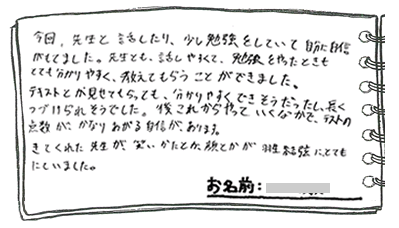 今回、先生と話したり、少し勉強をしていて自分に自信
がもてました。先生とも、話しやすくて、勉強をやったときも
とても分かりやすく、教えてもらうことができました。
テキストとか見せてもらっても、分かりやすくできそうだったし、長く
つづけられそうでした。後これからやっていくなかで、テストの
点数が、かなりあがる自信があります。
きてくれた先生が、笑いかたとか、顔とかが 結弦にとても
にていました。
お名前：